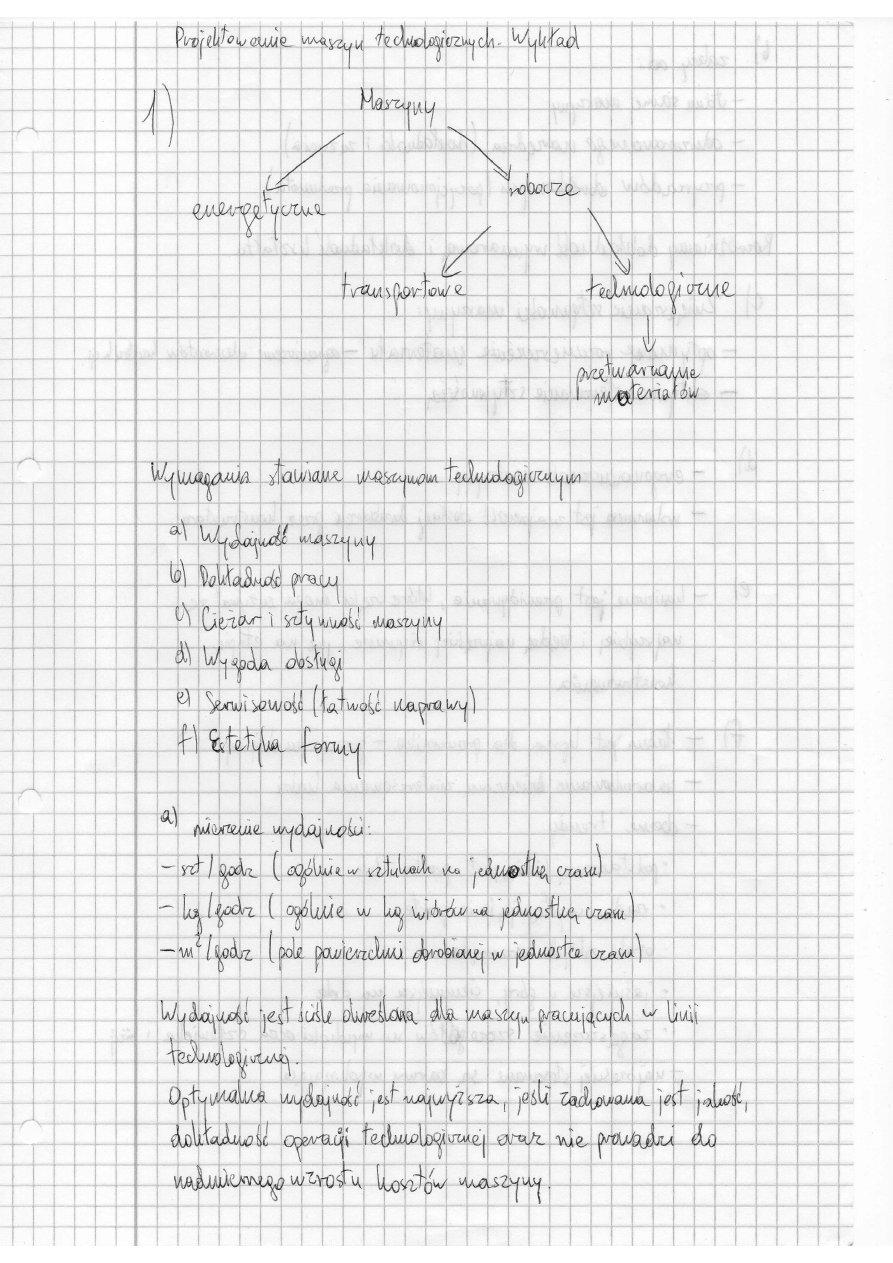 Projektowanie maszyn technologicznych. Wykład
1)
Maszyny
energetyczne
robocze
transportowe
technologiczne
przetwarzanie
materiałów
Wymagania stawiane maszynom technologicznym
a) Wydajność maszyny
b) Dokładność pracy
c) Ciężar i sztywność maszyny
d) Wygoda obsługi
e) Serwisowość (łatwość naprawy)
f) Estetyka formy
a) mierzenie wydajności:
– szt/godz (ogólnie w sztukach na jednostkę czasu)
– kg/godz (ogólnie w kg wiórów na jednostkę czasu)
– m²/godz (pole powierzchni obrobionej w jednostce czasu)
Wydajność jest ściśle określona dla maszyn pracujących w linii
technologicznej.
Optymalna wydajność jest najwyższa, jeśli zachowana jest jakość,
dokładność operacji technologicznej oraz nie prowadzi do
nadmiernego wzrostu kosztów maszyny.